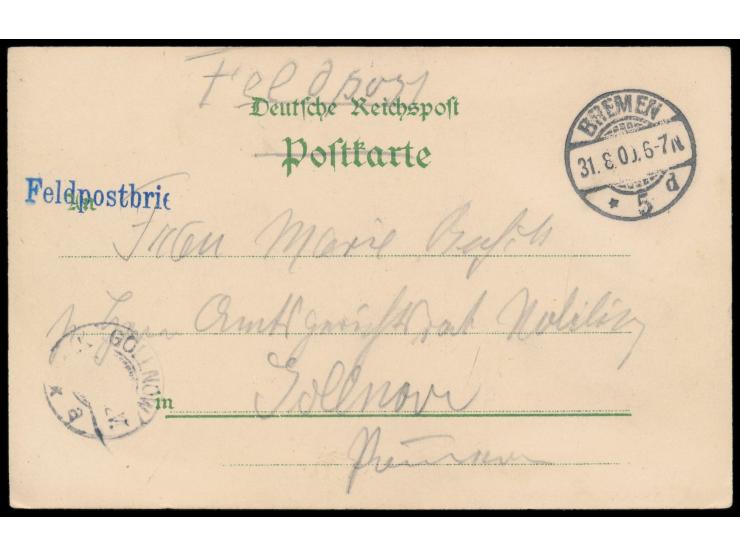 Feldpost
Deutsche Reichspost
Postkarte
BREMEN
31. 8. 00. 6-7 N
* 5 d
Feldpostbrie
An
Frau Marie
Amtsgerichtsrat
GOLLNOW
* a
in Gollnow
Pommern